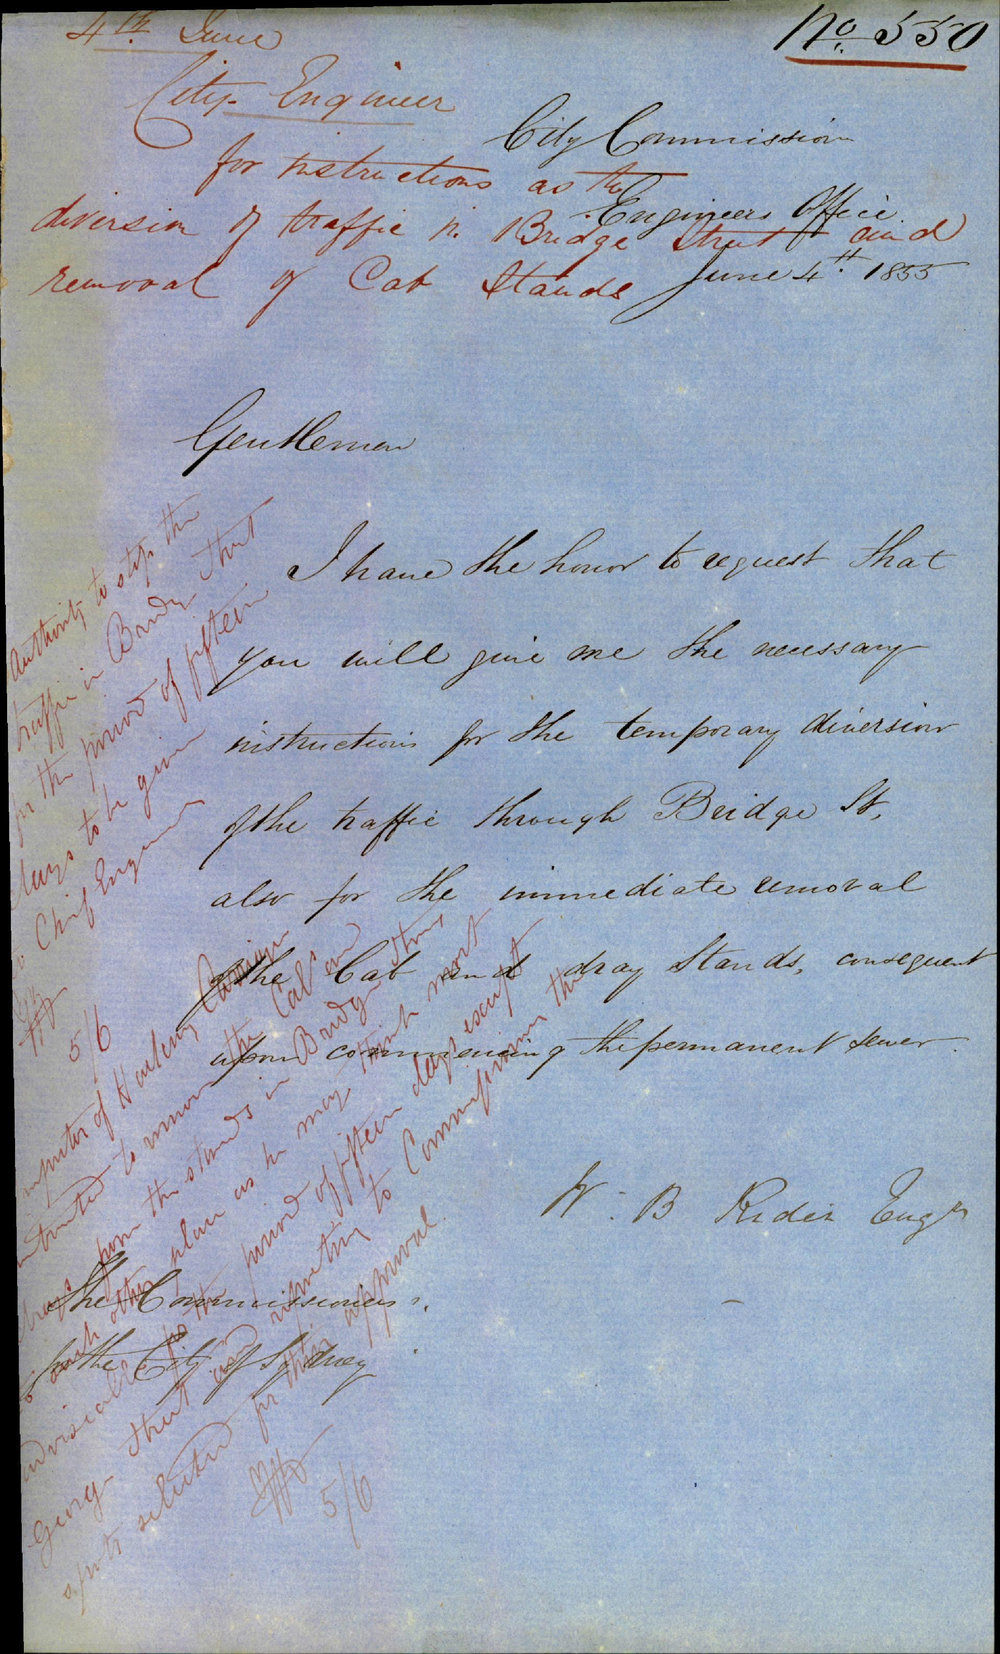 No. 550
4th June
City Engineer
for instructions as to
diversion of traffic in Bridge Street and
removal of Cab Stands
City Commission
Engineers Office
June 4th 1855
Gentlemen
I have the honor to request that
you will give me the necessary
instructions for the temporary diversion
of the traffic through Bridge St,
also for the immediate removal
of the Cab and dray Stands, consequent
upon commencing the permanent sewer.
W. B Rider Engr
The Commissioners
for the City of Sydney
Authority to stop the
traffic in Bridge Street
for the period of fifteen
days to be given
to Chief Engineer
5/6
Inspector of Hackney Carriages
instructed to remove the Cabs and
drays from the stands in Bridge Street
to such other place as he may think most
advisable for the period of fifteen days except
George Street and reporting to Commissioners the
spots selected for their approval
5/6